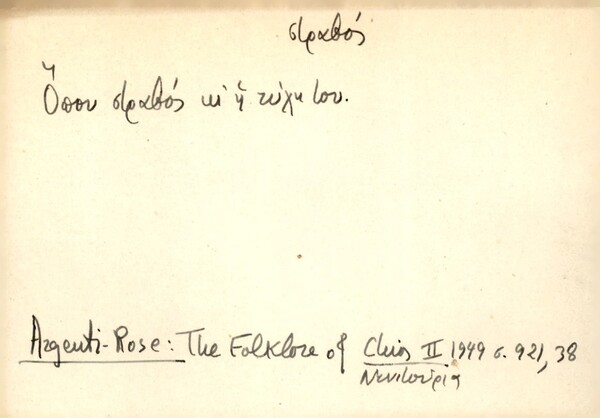 στραβός
Ὅπου στραβός κι ἡ τύχη του.
Argenti-Rose: The Folklore of Chios II 1949 σ. 921, 38
Νενιτούρια